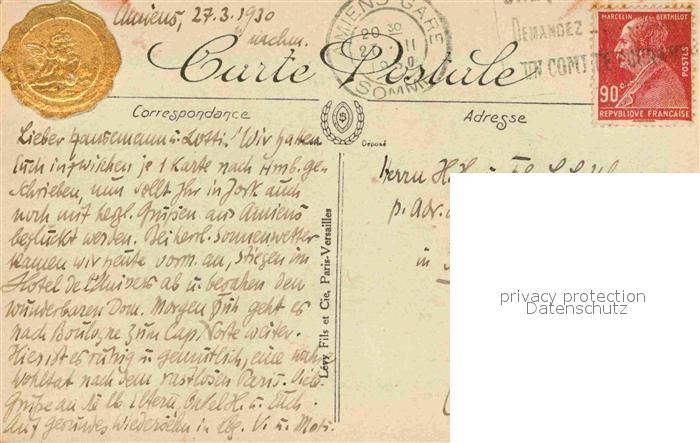 Amiens, 27.3.1930
nachm.
AMIENS GARE
20 30
SOMME
DEMANDEZ
UN COMPTE
MARCELIN BERTHELOT
POSTES
90c
REPUBLIQUE FRANÇAISE
Carte Postale
Correspondance
Adresse
Déposé
Lévy Fils et Cie, Paris-Versailles
Lieber Hansemann u. Lotti! Wir hatten
Euch inzwischen je 1 Karte nach Hmb. ge-
schrieben, nun sollt Ihr in Jork auch
noch mit hrzl. Grüßen aus Amiens
beglückt werden. Bei herrl. Sonnenwetter
kamen wir heute vorm. an, stiegen im
Hotel de l'Univers ab u. besahen den
wunderbaren Dom. Morgen früh geht es
nach Boulogne zum Cap weiter.
Hier ist es ruhig u. gemütlich, eine wahre
Wohltat nach dem rastlosen Paris. Viele
Grüße an die lb. Eltern, Onkel H. u. Euch
Auf gesundes Wiedersehn in Hbg. V. u. Mutt.
Herrn H. H.
p. Adr.
in
privacy protection
Datenschutz